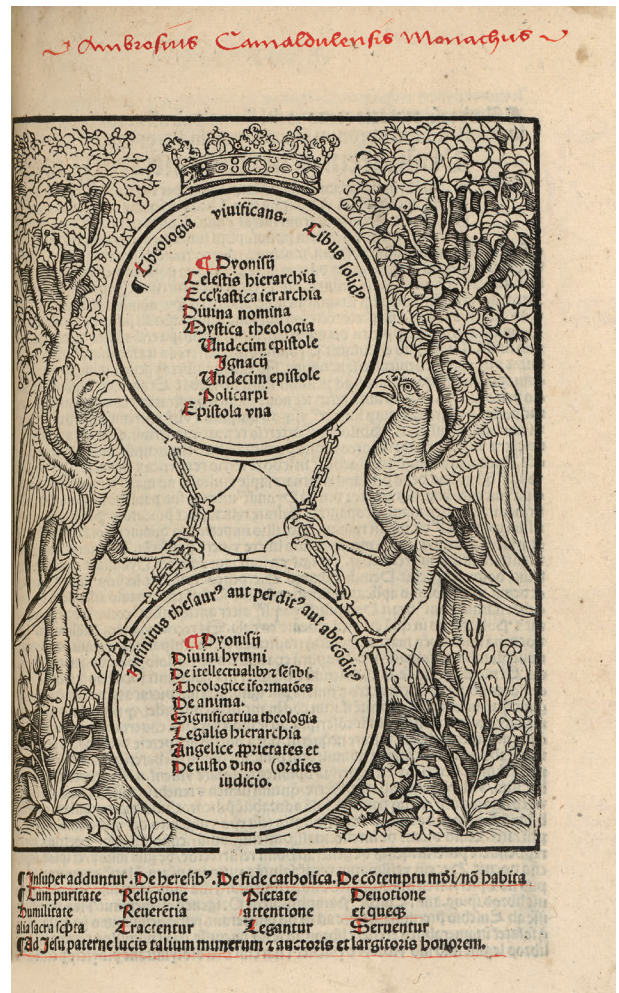 Ambrosius Camaldulensis Monachus
¶ Theologia viuificans. Cibus solidꝰ
¶ Dyonisij
Celestis hierarchia
Ecclīastica ierarchia
Diuina nomina
Mystica theologia
Undecim epistole
Ignacij
Undecim epistole
Policarpi
Epistola vna
Infinitus thesaurꝰ aut perditꝰ aut abscōditꝰ
¶ Dyonisij
Diuini hymni
De ītellectualibꝰ ⁊ sēsibi.
Theologice īformatōes
De anima.
Significatiua theologia
Legalis hierarchia
Angelice ꝓprietates et
De iusto dīno (ordīes
iudicio.
¶ Insuper adduntur. De heresibꝰ. De fide catholica. De cōtemptu mōi/nō habita
¶ Cum puritate Religione Pietate Deuotione
humilitate Reuerētia attentione et queqꝫ
alia sacra scpta Tractentur Legantur Seruentur
¶ Ad Jesu paterne lucis talium munerum ⁊ auctoris et largitoris honorem.